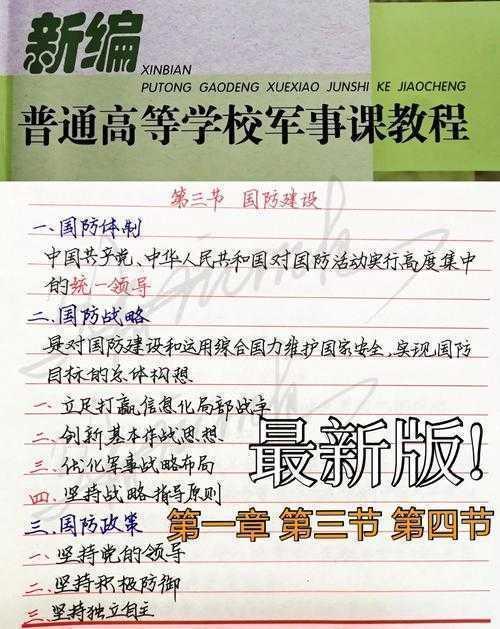 新编
XINBIAN
PUTONG GAODENG XUEXIAO JUNSHI KE JIAOCHENG
普通高等学校军事课教程
第三节 国防建设
一、国防体制
中国共产党、中华人民共和国对国防活动实行高度集中
的统一领导
二、国防战略
是对国防建设和运用综合国力维护国家安全,实现国防
目标的总体构想
一、立足打赢信息化局部战争
二、创新基本作战思想
三、优化军事战略布局
四、坚持战略指导原则
最新版!
第一章 第三节 第四节
三、国防政策
一、坚持党的领导
二、坚持积极防御
三、坚持独立自主